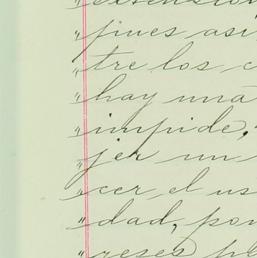 " extensión
" fines así
" tre los c
" hay una
" impide,
" jer un
" cer, el us
" dad, por
" reses pe